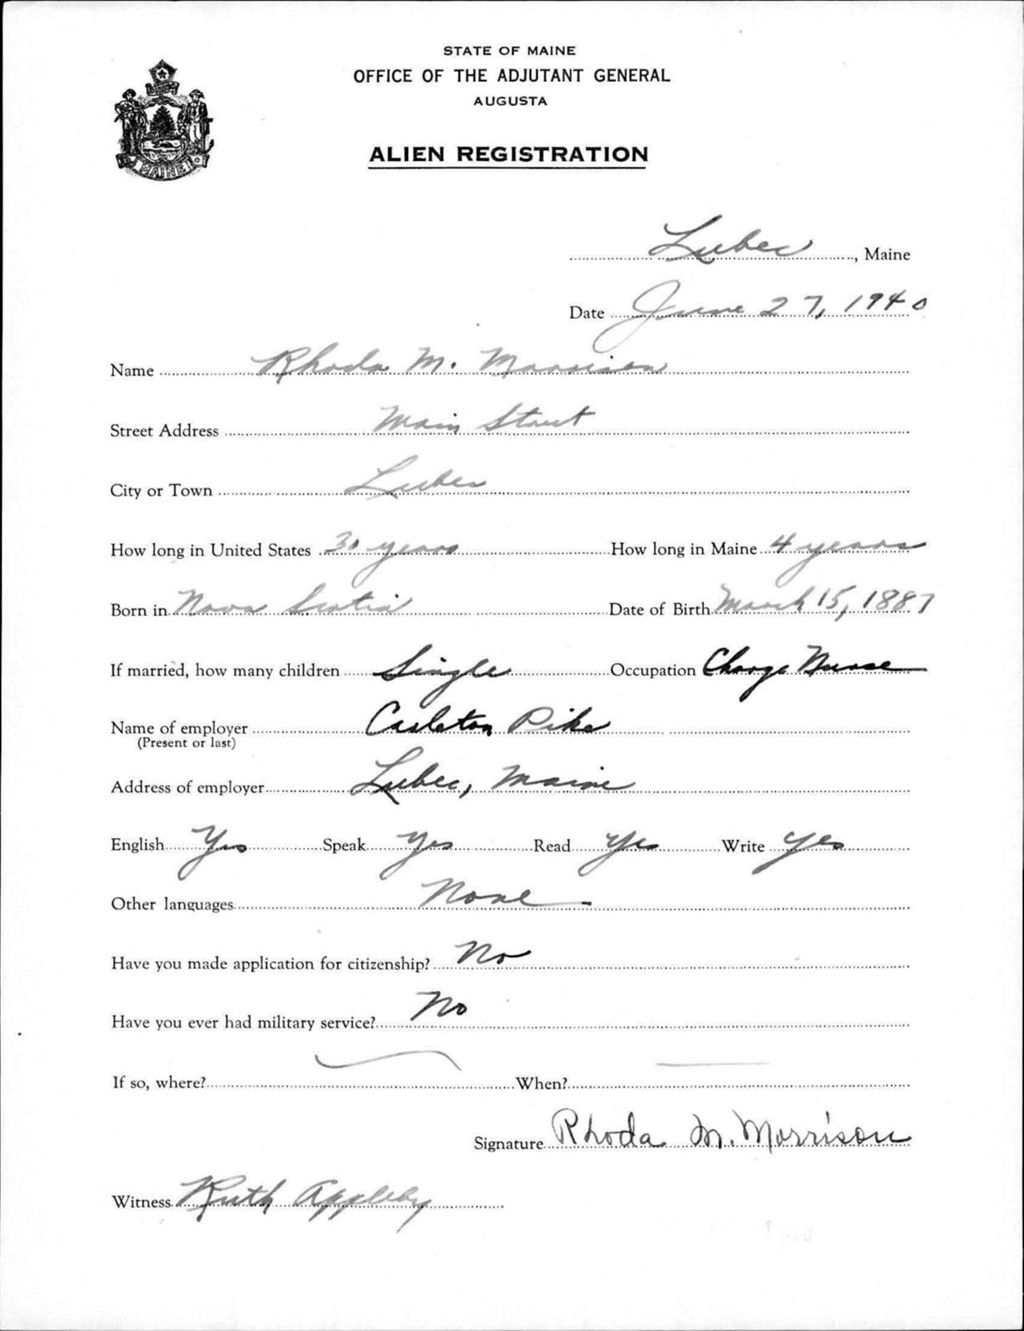 STATE OF MAINE
OFFICE OF THE ADJUTANT GENERAL
AUGUSTA
ALIEN REGISTRATION
MAINE
Lubec, Maine
Date June 27, 1940
Name Rhoda M. Morrison
Street Address Main Street
City or Town Lubec
How long in United States years How long in Maine 4 years
Born in Nova Scotia Date of Birth March 15, 1887
If married, how many children Single Occupation Charge Nurse
Name of employer Carleton Pike
(Present or last)
Address of employer Lubec, Maine
English Yes Speak Yes Read Yes Write Yes
Other languages None
Have you made application for citizenship? No
Have you ever had military service? No
If so, where? When?
Signature Rhoda M. Morrison
Witness Ruth Appleby